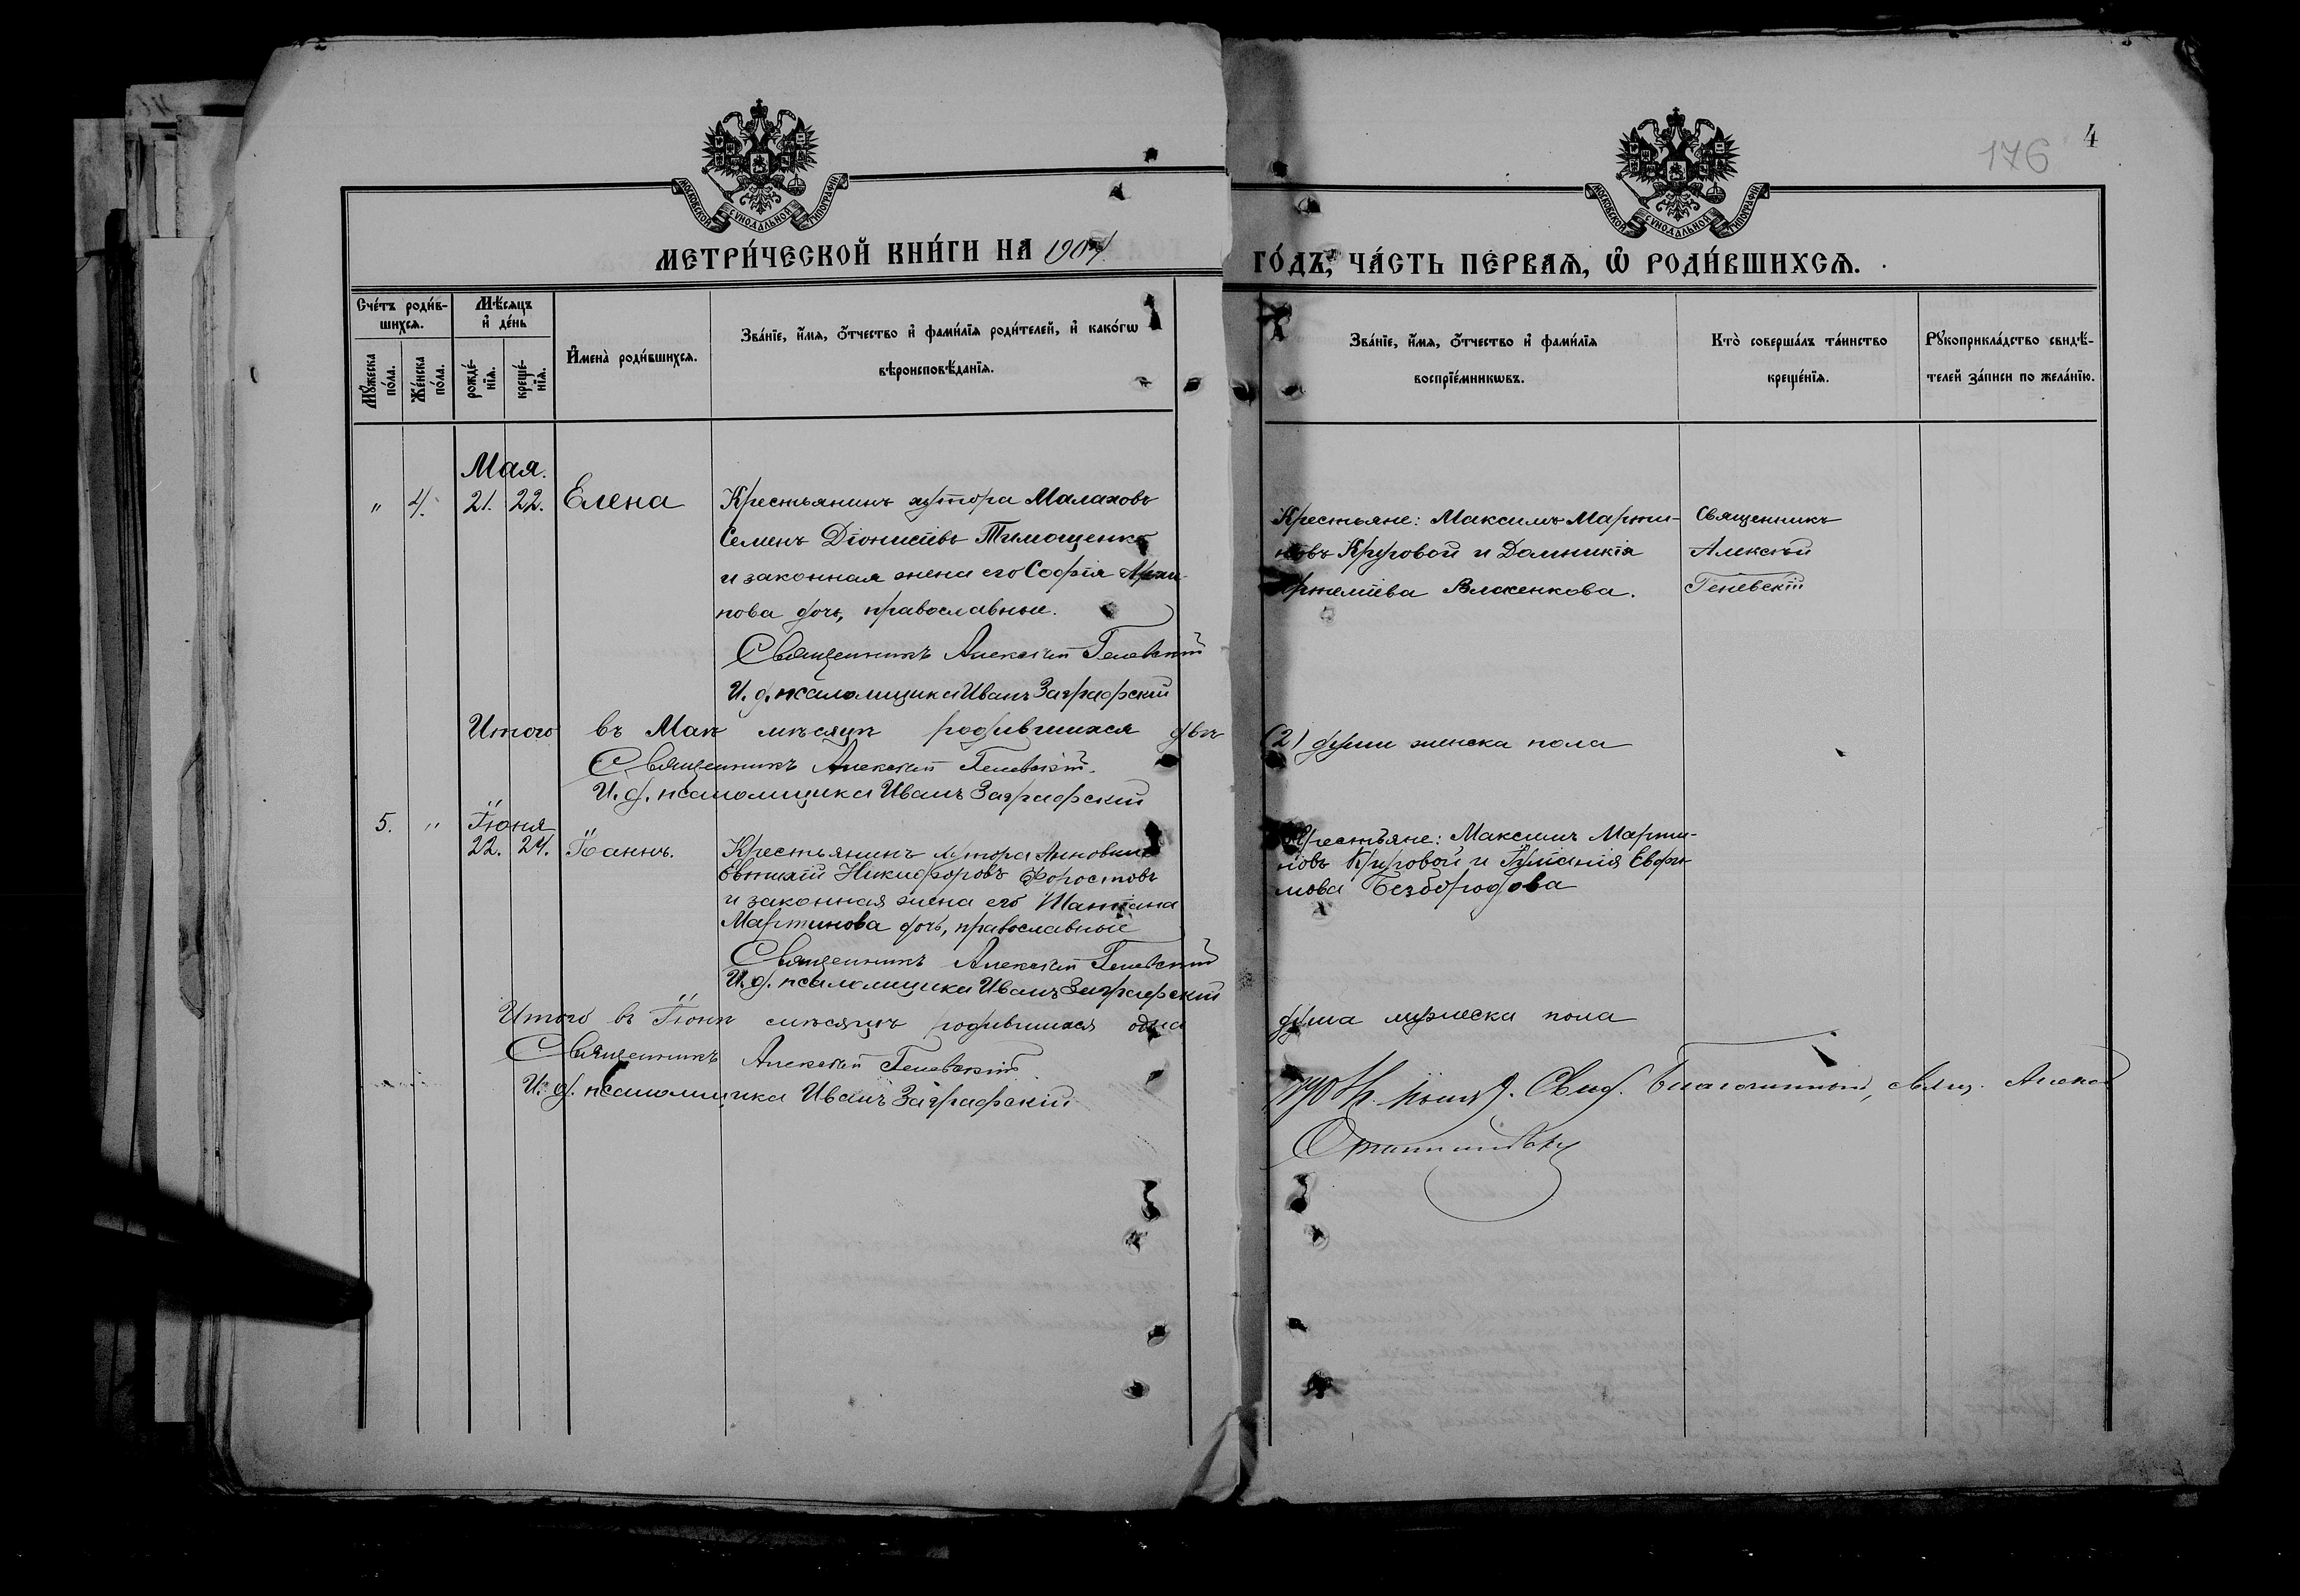 176
4
МОСКОВСКОЙ СѴНОДАЛЬНОЙ ТИПОГРАФІИ
МОСКОВСКОЙ СѴНОДАЛЬНОЙ ТИПОГРАФІИ
МЕТРИ́ЧЕСКОЙ КНИ́ГИ НА 1904
ГО́ДЪ, ЧА́СТЬ ПЕ́РВАѦ, Ѡ҆ РОДИ́ВШИХСѦ.
Сче́тъ роди́в-
шихсѧ.
Мѣ́сѧцъ
и҆ де́нь
Мꙋ́жеска по́ла.
Же́нска по́ла.
рожде́-
нїѧ.
креще́-
нїѧ.
И҆мена̀ роди́вшихсѧ.
Зва́нїе, и҆́мѧ, ѻ҆́тчество и҆ фами́лїѧ роди́телей, и҆ како́гѡ
вѣроисповѣ́данїѧ.
Зва́нїе, и҆́мѧ, ѻ҆́тчество и҆ фами́лїѧ
воспрїе́мникѡвъ.
Кто̀ соверша́лъ та́инство
креще́нїѧ.
Рꙋкоприкла́дство свидѣ́-
телей за́писи по жела́нїю.
Мая.
" 4. 21. 22. Елена
Крестьянинъ хутора Малаховъ
Семенъ Діонисіевъ Тимощенко
и законная жена его Софія Архи-
пова дочь, православные.
Священникъ Алексѣй Геневскій
И. д. псаломщика Иванъ Заграфскій
Крестьяне: Максимъ Марти-
новъ Круговой и Домникія
Артеміева Власенкова.
Священникъ
Алексѣй
Геневскій
Итого въ Маѣ мѣсяцѣ родившихся двѣ (2) души женска пола
Священникъ Алексѣй Геневскій.
И. д. псаломщика Иванъ Заграфскій
Іюня
5. " 22. 24. Іоаннъ.
Крестьянинъ хутора
Евтихій Никифоровъ Форостовъ
и законная жена его Татіана
Мартинова дочь, православные
Священникъ Алексѣй Геневскій
И. д. псаломщика Иванъ Заграфскій
Крестьяне: Максимъ Марти-
новъ Круговой и Іуліанія Евфи-
мова Безбородова
Итого въ Іюнѣ мѣсяцѣ родившихся одна душа мужеска пола
Священникъ Алексѣй Геневскій
И. д. псаломщика Иванъ Заграфскій
Свид. Благочинный, свящ. Алексѣй